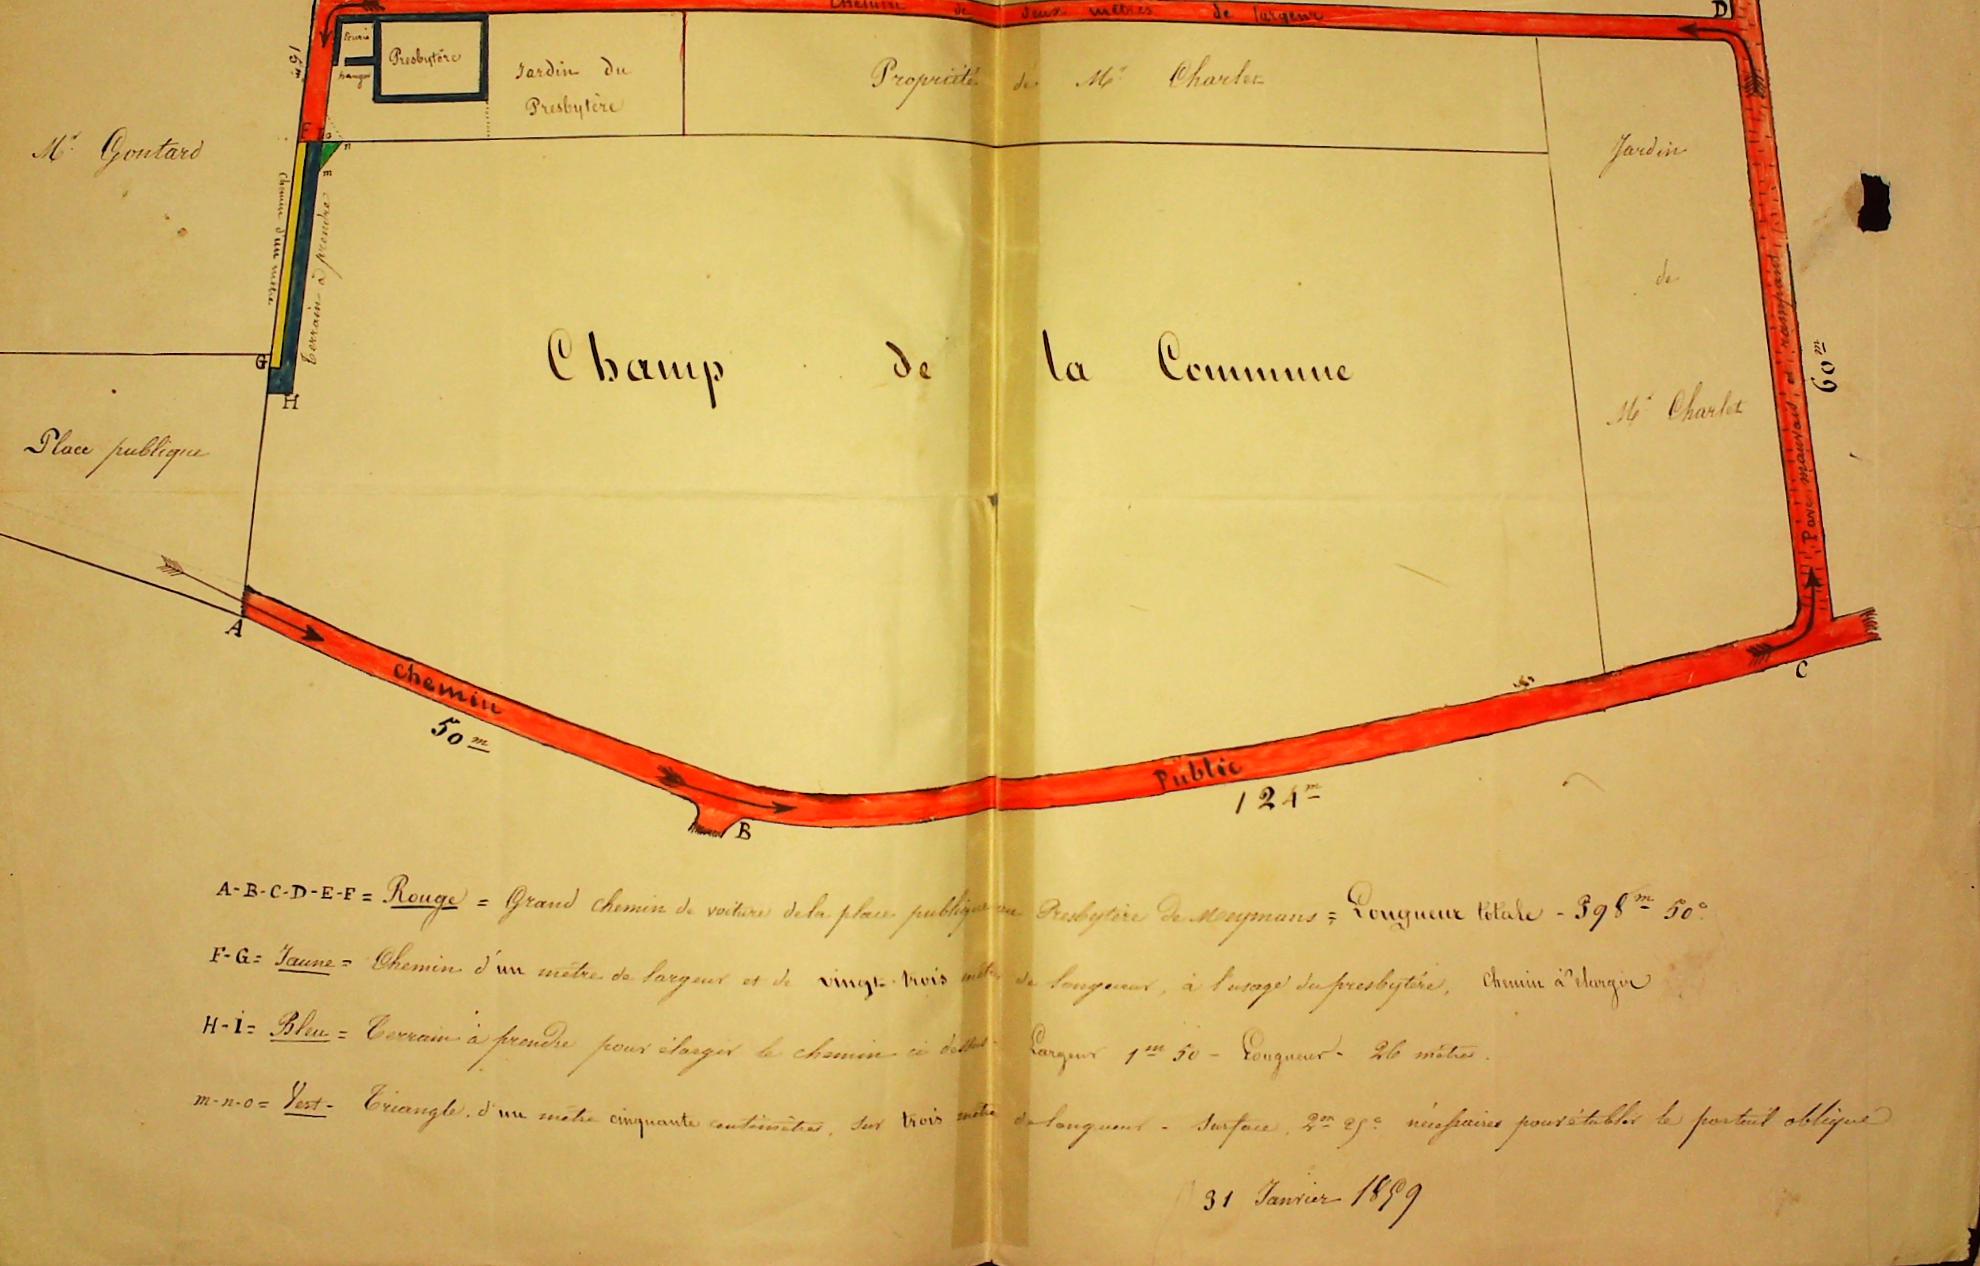 Chemin de deux mètres de largeur
D
Ecurie
hangar
Presbytère
Jardin du
Presbytère
Propriété de Mr Charlet
Mr Gontard
F
n
m
Chemin d'un mètre
Terrain à prendre
Jardin
de
Mr Charlet
Pavé mauvais et rampant
60m
G
H
Champ de la Commune
Place publique
A
Chemin
50m
B
Public
124m
C
A-B-C-D-E-F = Rouge = Grand chemin de voiture de la place publique au Presbytère de Meymans = Longueur totale - 398m 50c
F-G = Jaune = Chemin d'un mètre de largeur et de vingt-trois mètres de longueur, à l'usage du presbytère, Chemin à élargir
H-I = Bleu = Terrain à prendre pour élargir le chemin ci dessus - Largeur 1m 50 - Longueur - 26 mètres.
m-n-o = Vert - Triangle d'un mètre cinquante centimètres, sur trois mètres de longueur - Surface 2m 25c nécessaires pour établir le portail oblique
31 Janvier 1859